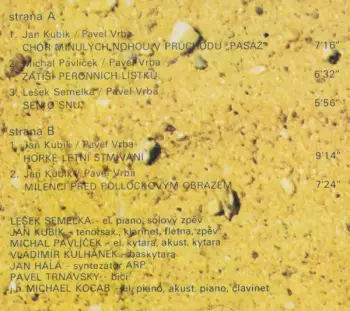 strana A
1. Jan Kubík / Pavel Vrba
CHÓR MINULÝCH NOHOU V PRŮCHODU „PASÁŽ“ 7'16"
2. Michal Pavlíček / Pavel Vrba
ZÁTIŠÍ PERONNÍCH LÍSTKŮ 6'32"
3. Lešek Semelka / Pavel Vrba
SEN O SNU 5'56"
strana B
1. Jan Kubík / Pavel Vrba
HORKÉ LETNÍ STMÍVÁNÍ 9'14"
2. Jan Kubík / Pavel Vrba
MILENCI PŘED POLLOCKOVÝM OBRAZEM 7'24"
LEŠEK SEMELKA - el. piano, sólový zpěv
JAN KUBÍK - tenorsax., klarinet, flétna, zpěv
MICHAL PAVLÍČEK - el. kytara, akust. kytara
VLADIMÍR KULHÁNEK - baskytara
JAN HÁLA - syntezátor ARP
PAVEL TRNAVSKÝ - bicí
j.h. MICHAEL KOCÁB - el. piano, akust. piano, clavinet